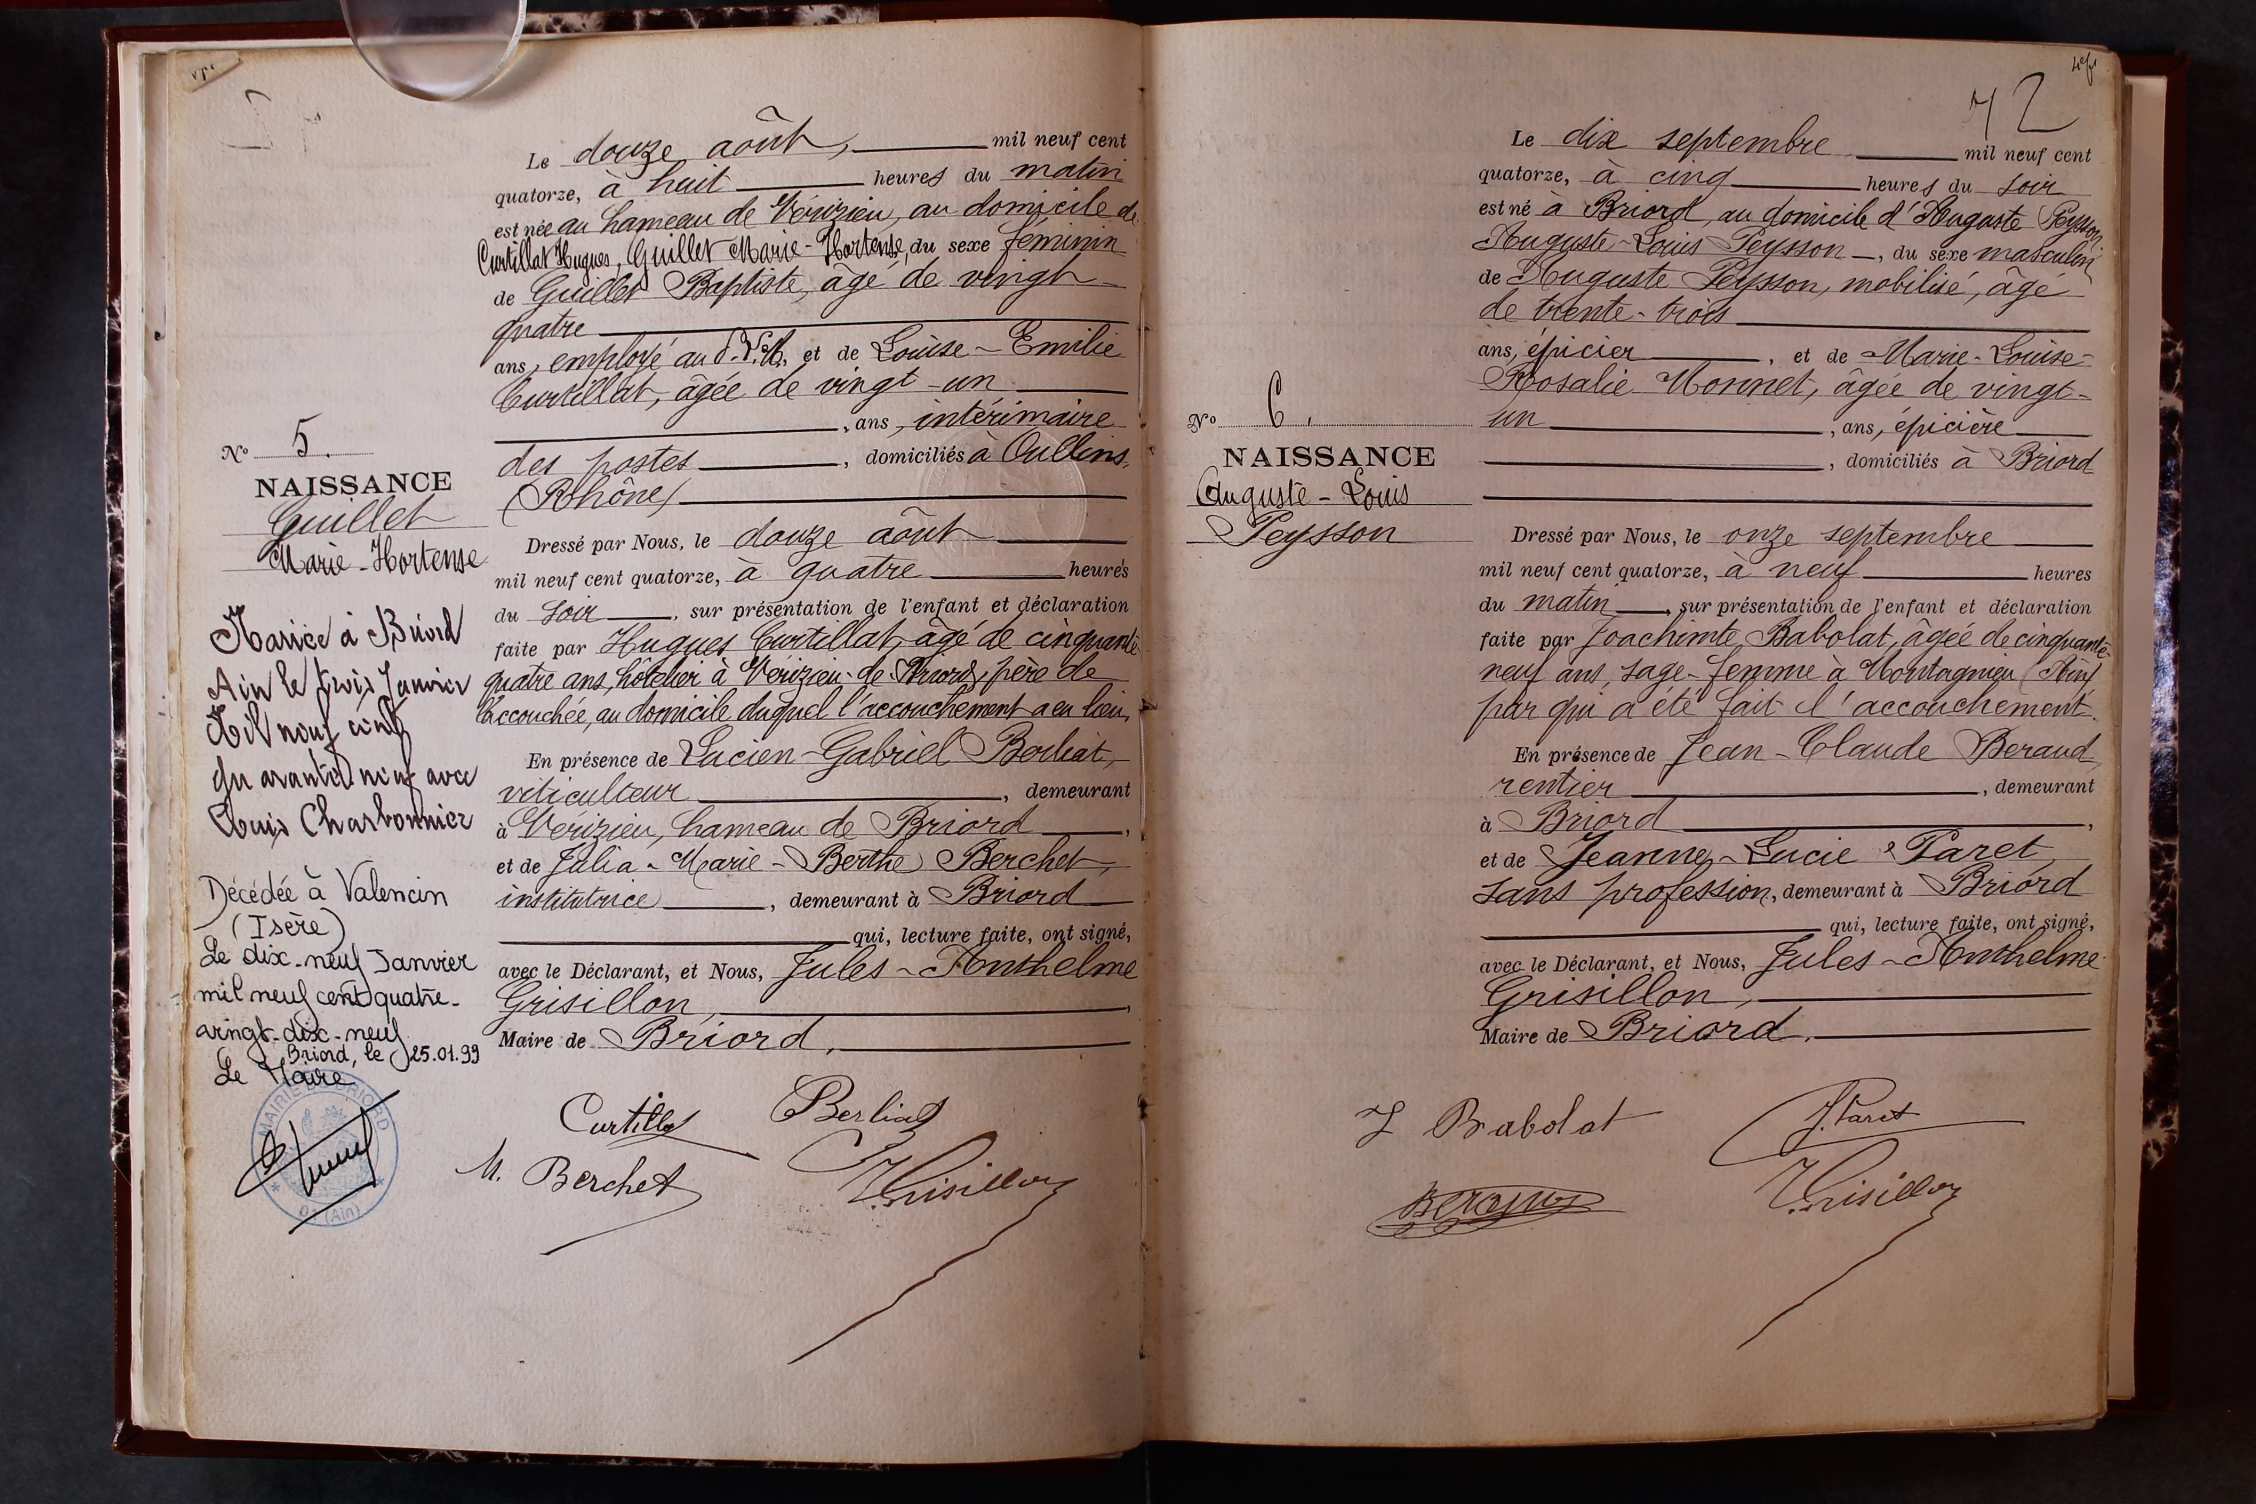 Le douze août, mil neuf cent
quatorze, à huit heures du matin
est née au hameau de Vérizieu, au domicile de
Curtillat Hugues, Guillet Marie-Hortense, du sexe féminin
de Guillet Baptiste, âgé de vingt
quatre
ans, employé au et de Louise-Emilie
Curtillat, âgée de vingt-un
, ans, intérimaire
des postes , domiciliés à Oullins,
(Rhône)
Dressé par Nous, le douze août
mil neuf cent quatorze, à quatre heures
du soir , sur présentation de l'enfant et déclaration
faite par Hugues Curtillat, âgé de cinquante
quatre ans, hôtelier à Vérizieu-de-Briord, père de
l'accouchée, au domicile duquel l'accouchement a eu lieu,
En présence de Lucien-Gabriel Berliat,
viticulteur , demeurant
à Vérizieu, hameau de Briord ,
et de Julia-Marie-Berthe Berchet,
institutrice , demeurant à Briord
qui, lecture faite, ont signé,
avec le Déclarant, et Nous, Jules-Anthelme
Grisillon, ,
Maire de Briord.
Curtillat Berliat
M. Berchet Grisillon
No 5.
NAISSANCE
Guillet
Marie-Hortense
Mariée à Briord
Ain le trois Janvier
Mil neuf cent
quarante neuf avec
Louis Charbonnier
Décédée à Valencin
(Isère)
Le dix-neuf Janvier
mil neuf cent quatre-
vingt-dix-neuf
Briord, le 25.01.99
Le Maire
MAIRIE DE BRIORD
01 (Ain)
72
Le dix septembre mil neuf cent
quatorze, à cinq heures du soir
est né à Briord, au domicile d'Auguste Peysson,
Auguste-Louis Peysson , du sexe masculin
de Auguste Peysson, mobilisé, âgé
de trente-trois
ans, épicier , et de Marie-Louise-
Rosalie Monnet, âgée de vingt-
un , ans, épicière
, domiciliés à Briord
Dressé par Nous, le onze septembre
mil neuf cent quatorze, à neuf heures
du matin , sur présentation de l'enfant et déclaration
faite par Joachimte Babolat, âgée de cinquante-
neuf ans, sage-femme à Montagnieu (Ain)
par qui a été fait l'accouchement.
En présence de Jean-Claude Beraud,
rentier , demeurant
à Briord ,
et de Jeanne-Lucie Paret,
sans profession, demeurant à Briord
qui, lecture faite, ont signé,
avec le Déclarant, et Nous, Jules-Anthelme
Grisillon,
Maire de Briord.
J Babolat J. Paret
Grisillon
No 6.
NAISSANCE
Auguste-Louis
Peysson